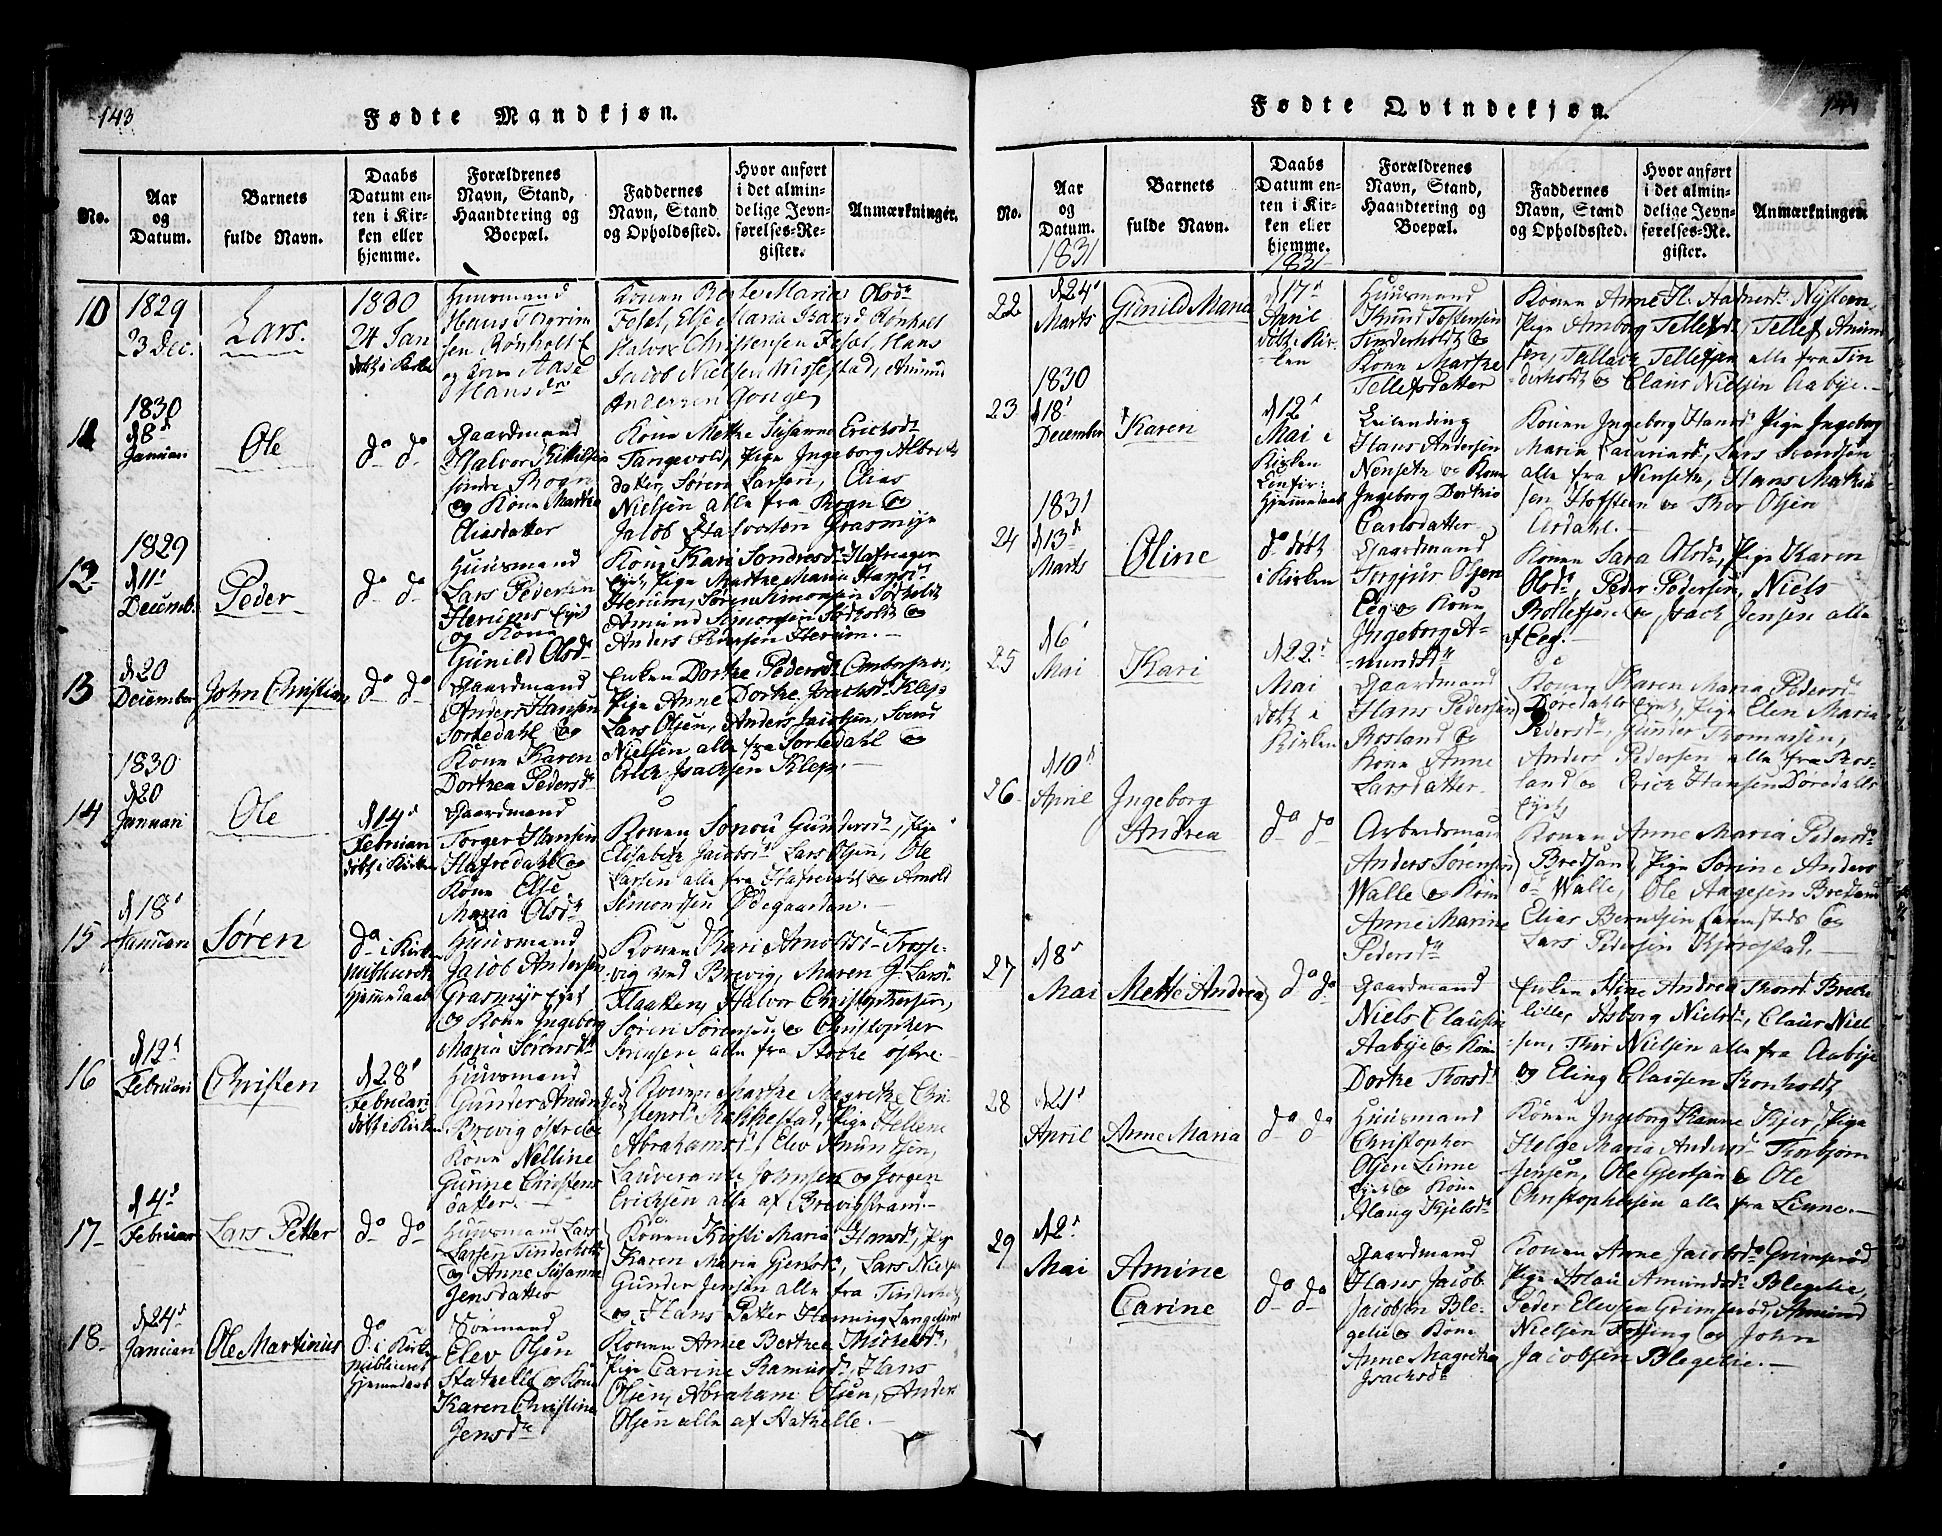 143
Fødte Mandkjøn.
No.
Aar og Datum.
Barnets fulde Navn.
Daabs Datum enten i Kirken eller hjemme.
Forældrenes Navn, Stand, Haandtering og Boepæl.
Faddernes Navn, Stand og Opholdssted.
Hvor anført i det almindelige Jevnførelses-Register.
Anmærkninger.
10
1829
23 Dec.
Lars.
1830
24 Jan
døbt i Kirke
Huusmand
Hans Torgrim
sen Rønholt E
og Kone Aase
Hansdr
Konen Berte Maria Olsdr
Fosal, Else Maria Isaacsd. Rønholt
Halvor Christensen Fosal, Hans
Jacob Nielsen Krissestad, Amund
Andersen Gonge
11
1830
d 8d
Januari
Ole
do do
Gaardmand
Halvor Kittilsen
søndre Rogn
og Kone Marthe
Eliasdatter
Kone Mette Susanne Erichsdr
Tangevold, Pige Ingeborg Albrets
datter, Søren Larsen, Elias
Nielsen alle fra Rogn og
Jacob Halvorsen Grasmyr
12
1829
d 11d
Decemb.
Peder
do do
Huusmand
Lars Pedersen
Herums Eyet
og Kone
Gunild Olsdr
Kone Kari Tondresdr Hafreager
Eyet, Pige Marthe Maria Hansd
Herum, Søren Simonsen Todholt og
Amund Simonsen Todholt og
Anders Hansen Herum.
13
d 20
December
John Christian
do do
Gaardmand
Anders Hansen
Sortedahl og
Kone Karen
Dorthea Pedersdr
Enken Dorthe Pedersdr Omborsnes,
Pige Anne Dorthe Isachsdr Klep
Lars Olsen, Anders Jacobsen, Svend
Nielsen alle fra Sortedahl og
Erich Isachsen Klep.
14
1830
d 20
Januari
Ole
d 14d
Februari
døbt i Kirken
Gaardmand
Torger Hansen
Hafredahl og
Kone Else
Maria Olsdr
Konen Tonou Gundersdr, Pige
Elisabeth Jacobsdr Lars Olsen, Ole
Larsen alle fra Hafredahl og Arnold
Simondsen Ødegaarden.
15
d 18d
Januari
Søren
do i Kirke
publiceret
hjemmedaab
Huusmand
Jacob Andersen
Grasmyr Eyet
og Kone Ingeborg
Maria Sørensdr
Konen Kari Arnoldsdr Trosse-
vig ved Brevig, Maren G. Larsdr
Flaaten, Halvor Christophersen,
Søren Sørensen og Christopher
Sørensen alle fra Stokke østre
16
d 12d
Februari
Christen
d 28d
Februari
døbt i Kirken
Huusmand
Gunder Amund
Brevig østre og
Kone Nelline
Gunne Christens
datter.
Konen Marthe Magrethe Chri
stensdr Rakkestad, Pige Hellene
Abrahamsdr, Elev Amundsen,
Lauverants Johnsen og Jorgen
Erichsen alle af Brevigstrand
17
d 4d
Februar
Lars Petter
do do
Huusmand Lars
Larsen Tinderholt
og Anne Susanne
Jensdatter
Konen Kirsti Maria Hansdr, Pige
Karen Maria Gjensdr, Lars Nielsen
Gunder Jensen alle fra Tinderholt
og Hans Petter Heming Langesund
18
d 24d
Januari
Ole Martinus
do i Kirke
publiceret
hjemmedaab
Sømand
Elev Olsen
Stathelle og Kone
Karen Christine
Jensdr
Konen Anne Berthea Thoresdr,
Pige Carine Ramusdr, Hans
Olsen, Abraham Olsen, Anders
Olsen alle af Stathelle.
144
Fødte Qvindekjøn.
No.
Aar og Datum.
Barnets fulde Navn.
Daabs Datum enten i Kirken eller hjemme.
Forældrenes Navn, Stand, Haandtering og Boepæl.
Faddernes Navn, Stand og Opholdssted.
Hvor anført i det almindelige Jevnførelses-Register.
Anmærkninger.
1831
1831
22
d 24d
Marts
Gunild Maria
d 17d
April
døbt i Kir-
ken
Huusmand
Knud Tostensen
Tinderholt og
Kone Marthe
Tellefsdatter
Konen Anne H. Aadnersdr Nysteen,
Pige Amborg Tellefsdr, Tellef Amun
sen, Tallack Tellefsen alle fra Tin
derholt og Claus Nielsen Aabye.
23
1830
d 18d
December
Karen
d 12d
Mai i
Kirken
Confir:
hjemmedaab
Leilending
Hans Andersen
Nenseth og Kone
Ingeborg Dorthia
Carlsdatter
Konen Ingeborg Hansd. Pige Ingeborg
Maria Zacariasd, Lars Svendsen
alle fra Nenseth, Hans Mathia
sen Hofsteen og Thor Olsen
Aasdahl.
24
1831
d 13d
Marts
Oline
do døbt
i Kirken
Gaardmand
Torgius Olsen
Eeg og Kone
Ingeborg A-
mundsdr
Konen Sara Olsdr, Pige Karen
Olsdr, Peder Pedersen, Niels
Rollefsen og Isach Jensen alle
af Eeg.
25
d 6d
Mai
Kari
d 22d
Mai
døbt i
Kirken
Gaardmand
Hans Pedersen
Rosland og
Kone Anne
Larsdatter
Konen Karen Maria Pedersdr
Døredahls Eyet, Pige Elen Maria
Pedersdr, Gunder Thomasen,
Anders Pedersen alle fra Ros-
land og Erich Hansen Døredahls
Eyet
26
d 10d
April
Ingeborg
Andrea
do do
Arbeidsmand
Anders Sørensen
Walle og Kone
Anne Marine
Pedersdr
Konen Anne Maria Pedersdr
Bredsand, Pige Sørine Anders
dr Walle, Ole Aagesen Bredsand
Elias Berntsen Saamsteds og
Lars Pedersen Kjørestad.
27
d 8d
Mai
Mette Andrea
do do
Gaardmand
Niels Clausen
Aabye og Kone
Dorthe Thorsdr
Enken Stine Andrea Thorsdr Brekke
lille, Asborg Nielsdr, Claus Niel
sen, Thor Nielsen alle fra Aabye
og Eling Clausen Rønholt
28
d 21d
April
Anne Maria
do do
Huusmand
Christopher
Olsen Linne
Eyet og Kone
Alaug Kjelsdr
Konen Ingeborg Hanne Kjer, Pige
Helge Maria Andersdr Thorbjørn
Jensen, Ole Gjertsen og Ole
Christophersen alle fra Linne.
29
d 2d
Mai
Amine
Carine
do do
Gaardmand
Hans Jacob
Jacobsen Ble-
gelie og Kone
Anne Magrethe
Isachsdr
Konen Anne Jacobsdr Grimsrød
Pige Aslau Amundsdr Blegelie,
Peder Elevsen Grimsrød, Amund
Nielsen Fossing og John
Jacobsen Blegelie.